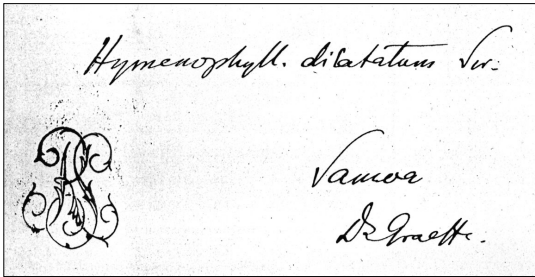 Hymenophyll. dilatatum Sw.
Samoa
Dr Graeffe.